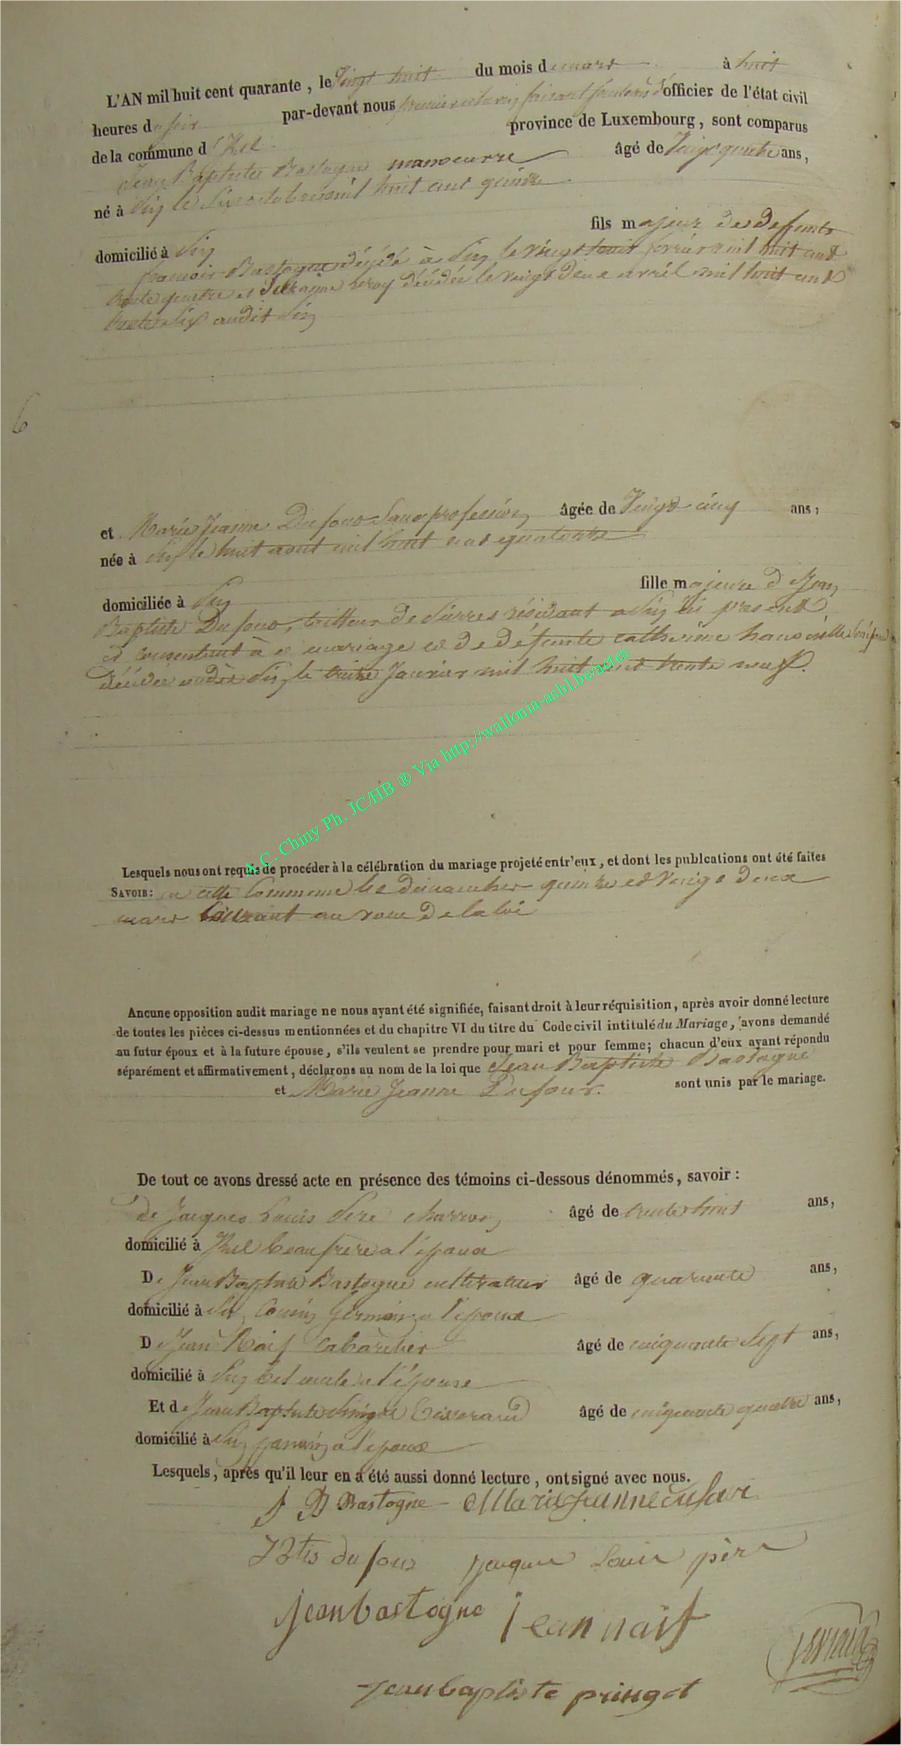 L'AN mil huit cent quarante, le Vingt huit du mois de mars à huit
heures du soir par-devant nous premier échevin faisant fonctions d'officier de l'état civil
de la commune d'Izel province de Luxembourg, sont comparus
Jean Baptiste Bastogne manoeuvre âgé de Vingt quatre ans,
né à le octobre mil huit cent quinze
domicilié à fils majeur des defunts
francois Bastogne décédé à le vingt huit mil huit cent
trente quatre et décédée le vingt deux avril mil huit cent
trente six audit
6
et Marie Jeanne Dufour Sans profession âgée de Vingt cinq ans,
née à le huit aout mil huit cent quatorze
domiciliée à fille majeure de Jean
Baptiste Dufour, tailleur de pierres résidant a ici présent
et consentant à ce mariage et de defunte catherine
décédée audit le treize Janvier mil huit cent trente neuf.
A.C. Chiny Ph. JC/HB ® Via http://wallonia-asbl.be/actes
Lesquels nous ont requis de procéder à la célébration du mariage projeté entr'eux, et dont les publcations ont été faites
SAVOIR: en cette Commune les dimanches quinze et vingt deux
mars courant au voeu de la loi
Aucune opposition audit mariage ne nous ayant été signifiée, faisant droit à leur réquisition, après avoir donné lecture
de toutes les pièces ci-dessus mentionnées et du chapitre VI du titre du Code civil intitulé du Mariage, avons demandé
au futur époux et à la future épouse, s'ils veulent se prendre pour mari et pour femme; chacun d'eux ayant répondu
séparément et affirmativement, déclarons au nom de la loi que Jean Baptiste Bastogne
et Marie Jeanne Dufour. sont unis par le mariage.
De tout ce avons dressé acte en présence des témoins ci-dessous dénommés, savoir:
de Jacques Louis Père charron, âgé de trente huit ans,
domicilié à Izel beaufrère a l'époux
De Jean Baptiste Bastogne cultivateur âgé de quarante ans,
domicilié à Cousin Germain a l'époux
De Jean Naif Cabaretier âgé de cinquante Sept ans,
domicilié à bel oncle a l'épouse
Et de Jean Baptiste Tisserand âgé de cinquante quatre ans,
domicilié à a l'époux
Lesquels, après qu'il leur en a été aussi donné lecture, ont signé avec nous.
J B Bastogne Marie Jeanne dufour
JBtis dufour Jacque Louis père
jean bastogne jean naif
jean baptiste pringot